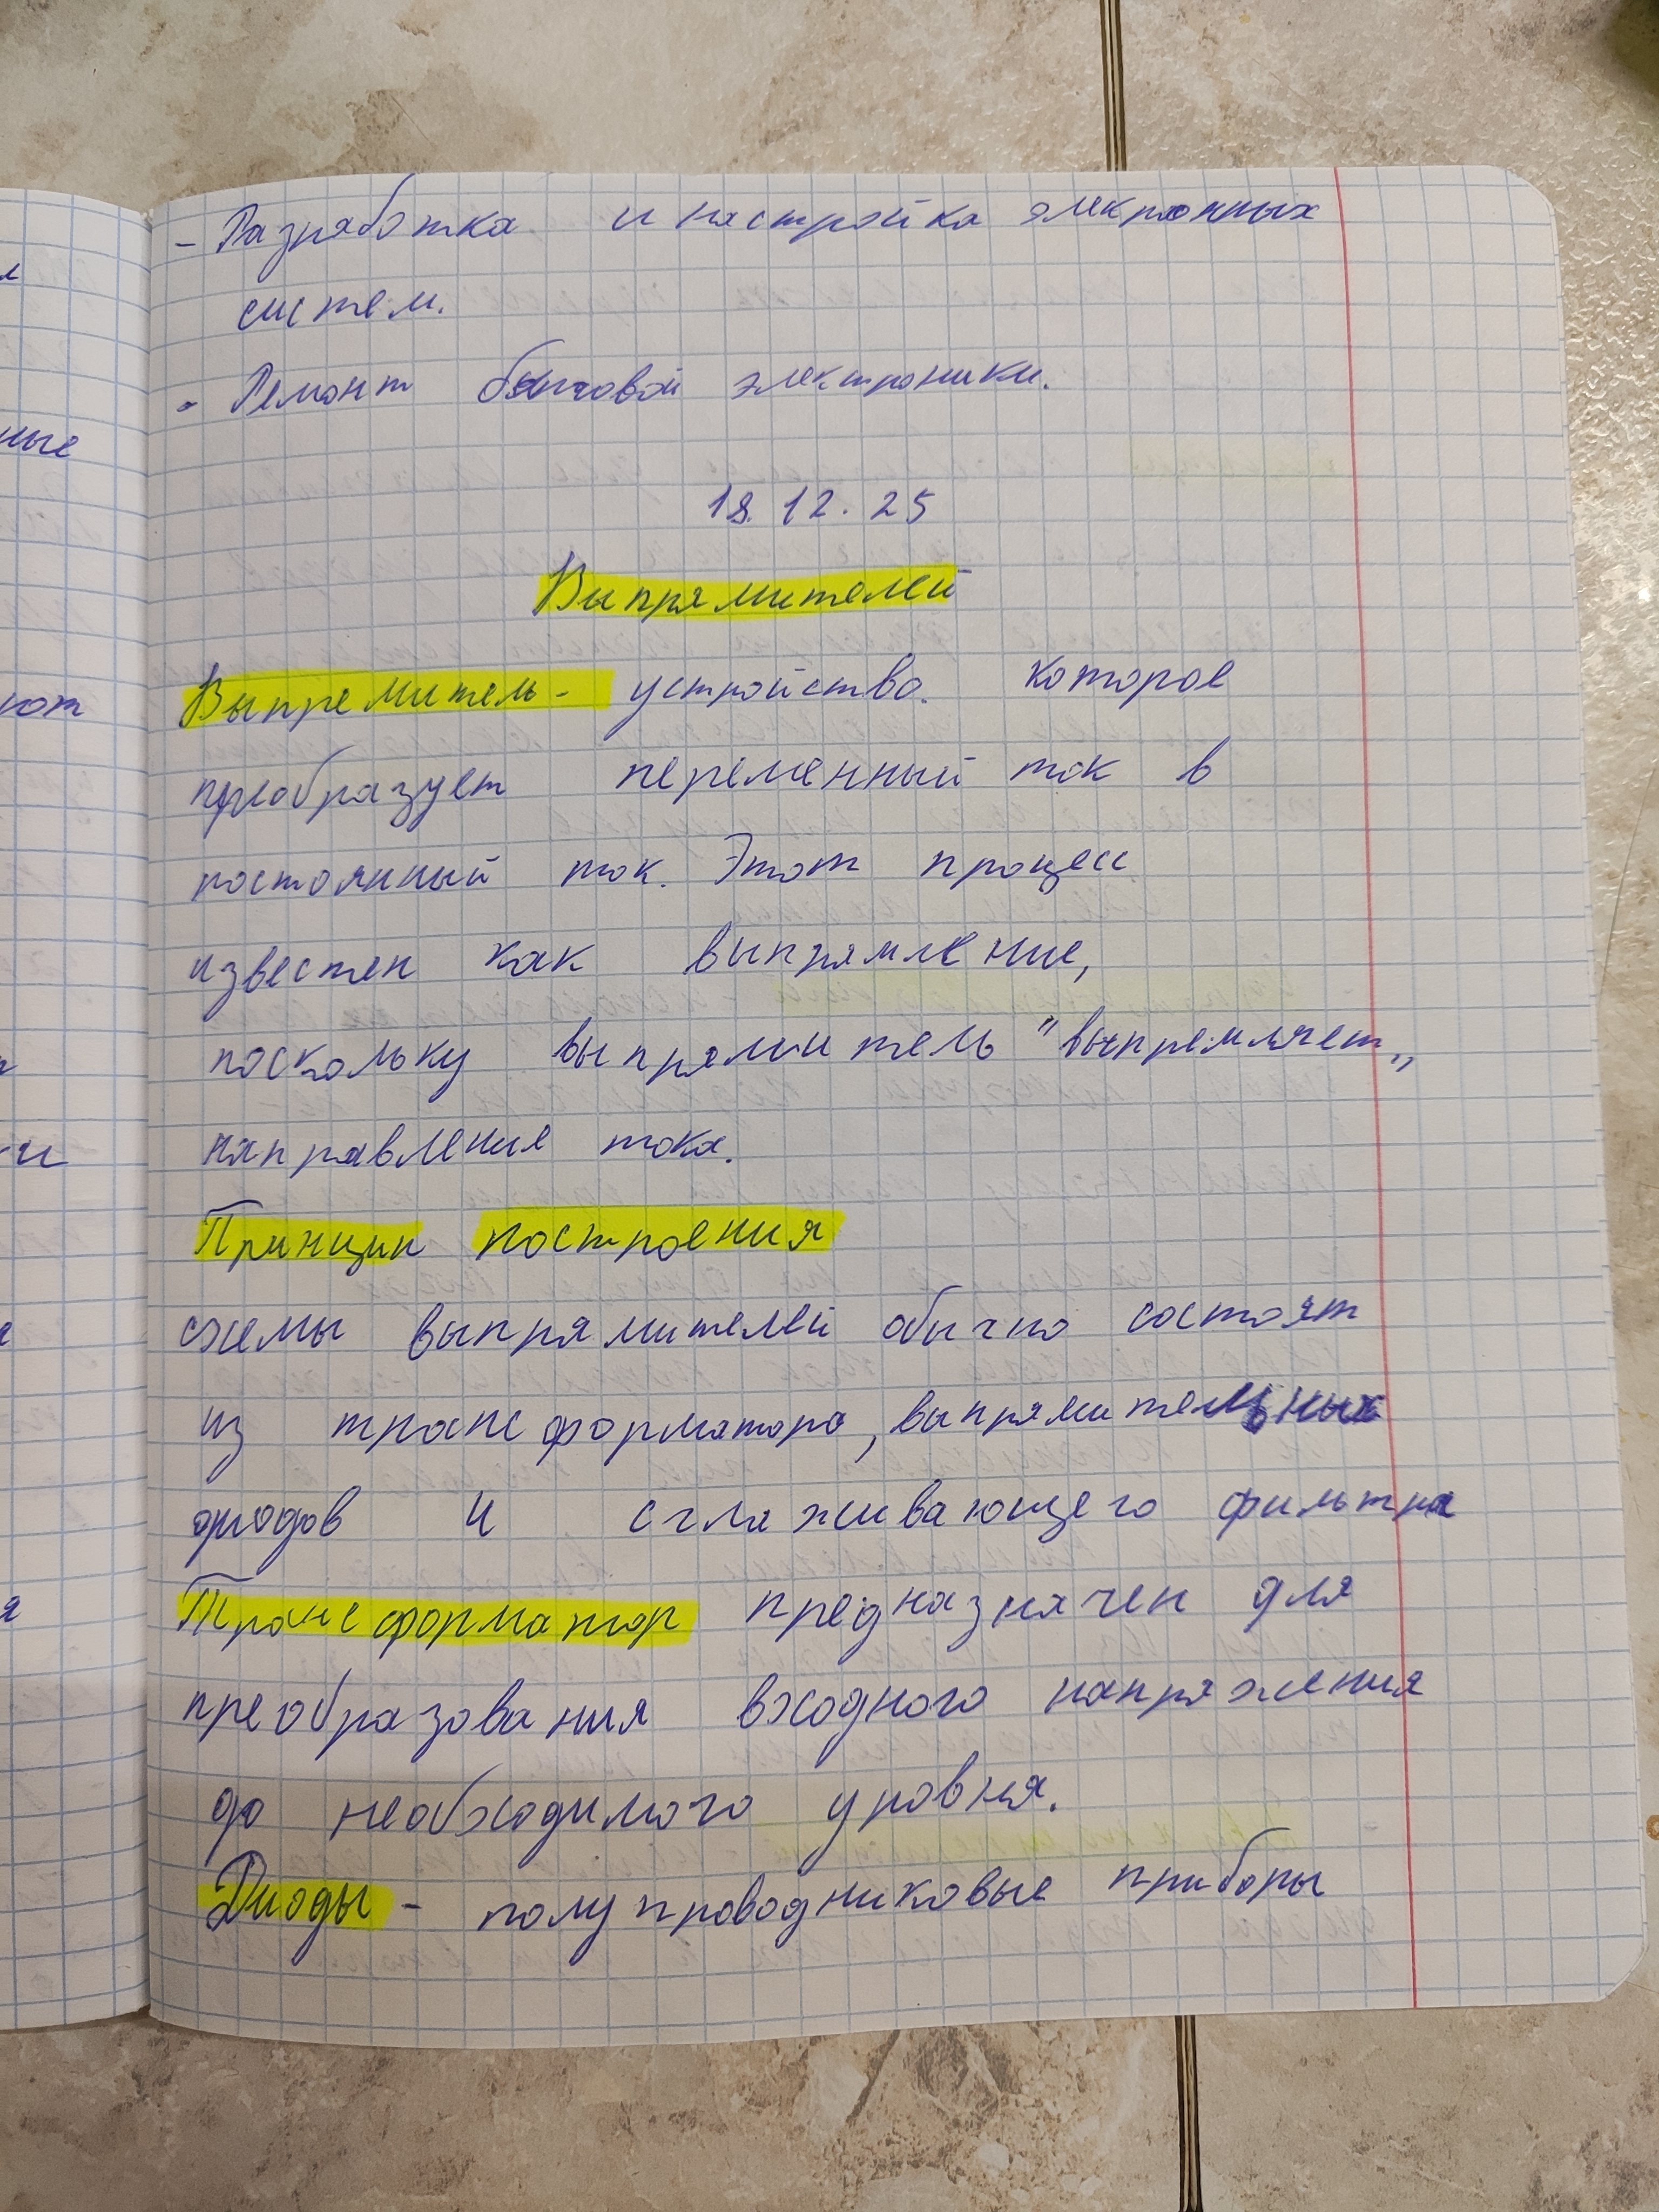 - Разработка и настройка электронных
систем.
- Ремонт бытовой электроники.
18.12.25
Выпрямителей
Выпремитель - устройство. которое
преобразует переменный ток в
постоянный ток. Этот процесс
известен как выпрямление,
поскольку выпрямитель "выпремляет„
направления тока.
Принцип построения
схемы выпрямителей обычно состоят
из трансформатора, выпрямительных
диодов и сглаживающего фильтра
Трансформатор предназначен для
преобразования входного напряжения
до необходимого уровня.
Диоды - полупроводниковые приборы